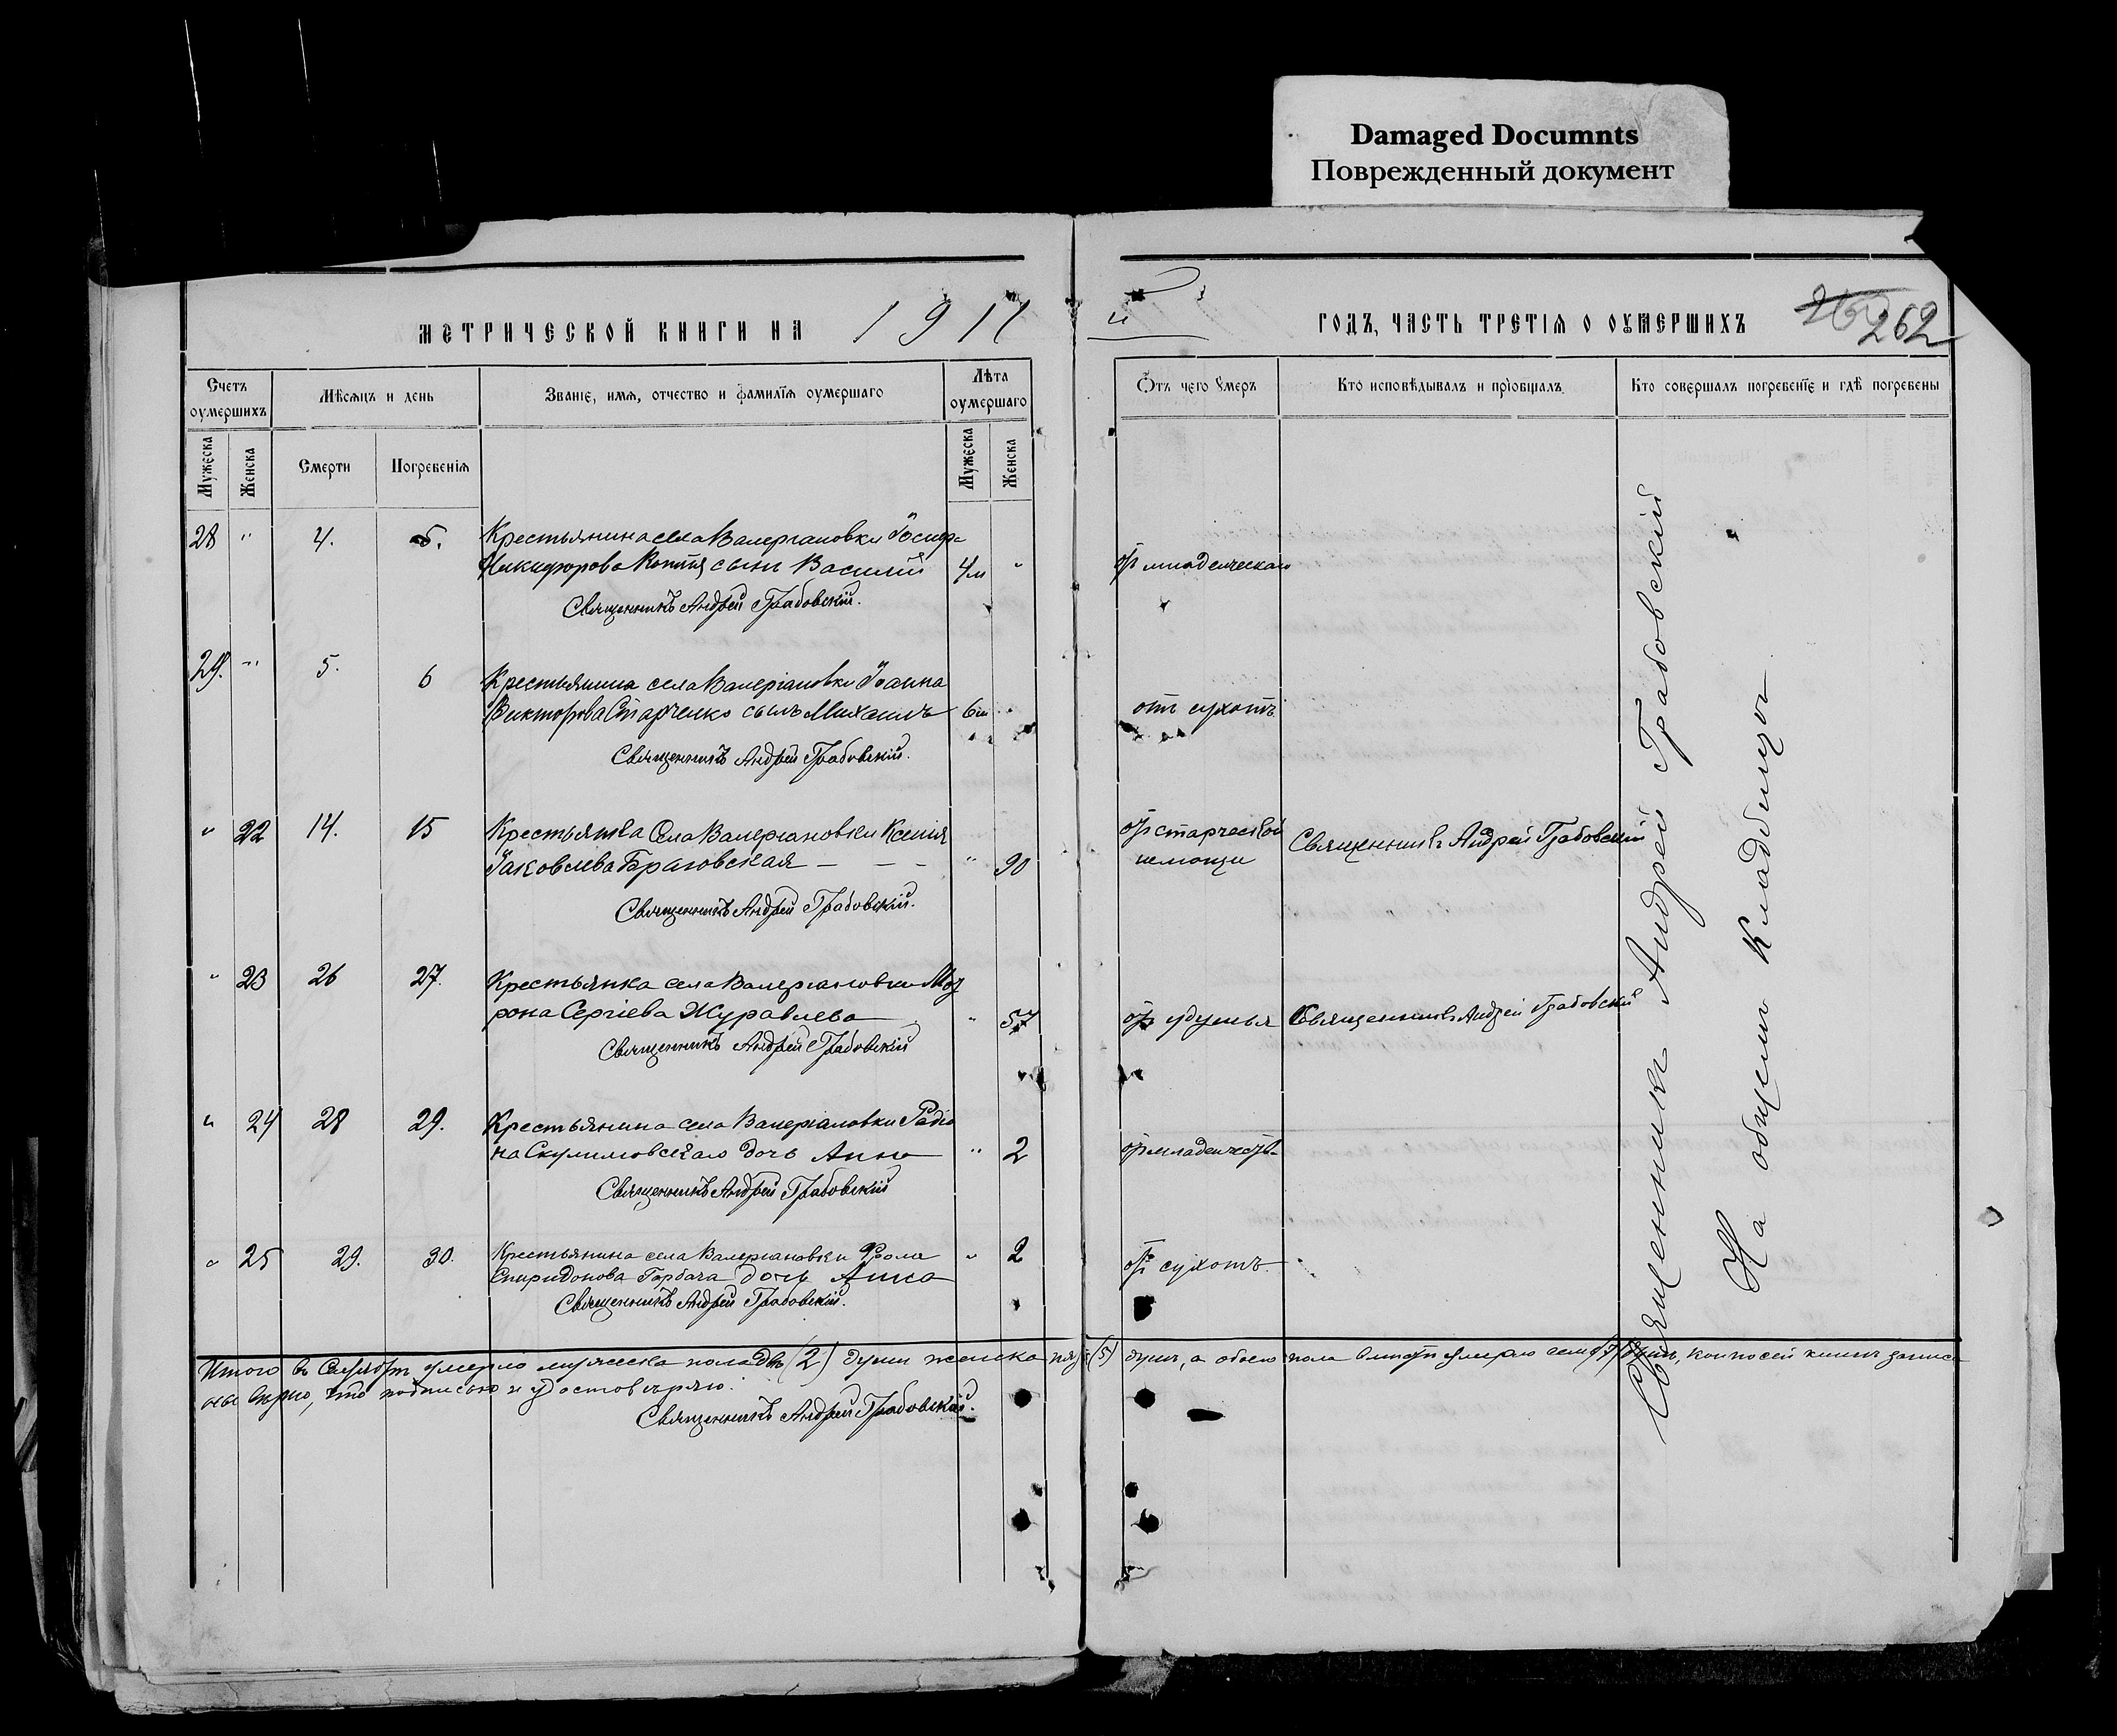 Damaged Documnts
Поврежденный документ
262
МЕТРИЧЕСКОЙ КНИГИ НА 191 й ГОДЪ, ЧАСТЬ ТРЕТІЯ О ОУМЕРШИХЪ
Счетъ оумершихъ
Мѣсяцъ и день
Званіе, имя, отчество и фамилія оумершаго
Лѣта оумершаго
Отъ чего умеръ
Кто исповѣдывалъ и пріобщалъ
Кто совершалъ погребеніе и гдѣ погребены
Мужеска
Женска
Смерти
Погребенія
Мужеска
Женска
28 " 4. 5. Крестьянина села Валеріановки
Никифорова сынъ Василій 4м " от младенческаго
Священникъ Андрей Грабовскій.
29. " 5. 6 Крестьянина села Валеріановки Іоанна
Викторова Старченко сынъ Михаилъ 6м " отъ сухотъ
Священникъ Андрей Грабовскій.
" 22 14. 15 Крестьянка села Валеріановки Ксенія
Іаковлева Браговская — — — " 90 от старческой немощи Священникъ Андрей Грабовскій
Священникъ Андрей Грабовскій.
" 23 26 27. Крестьянка села Валеріановки
рона Сергіева Журавлева " 57 от удушья Священникъ Андрей Грабовскій
Священникъ Андрей Грабовскій
" 24 28 29. Крестьянина села Валеріановки Радіо
на Скулимовскаго дочь Анна " 2 от младенчест.
Священникъ Андрей Грабовскій
" 25 29. 30. Крестьянина села Валеріановки Фрола
Спиридонова Горбача дочь Анна " 2 от сухотъ
Священникъ Андрей Грабовскій.
Священникъ Андрей Грабовскій
На общемъ кладбищѣ
Итого въ Сентябрѣ умерло мужеска пола двѣ (2) души женска пять (5) душъ, а обоего пола вмѣстѣ умерло семь (7) душъ, кои по сей книгѣ записа
ны вѣрно, что подписью и удостовѣряю.
Священникъ Андрей Грабовскій.